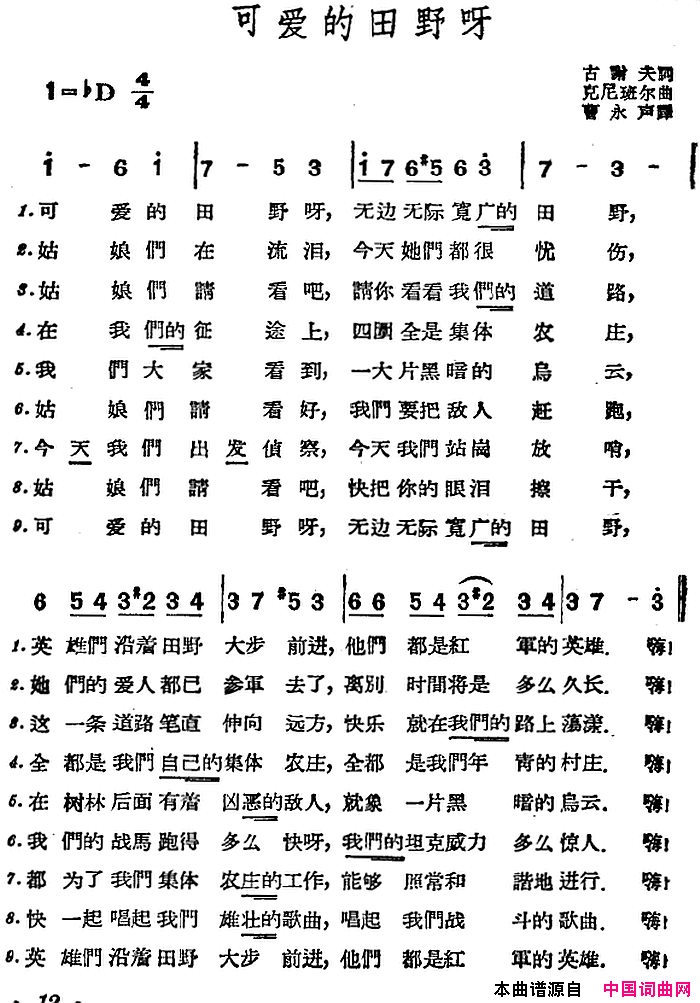 可爱的田野呀
1=♭D 4/4
古謝夫詞
克尼班尔曲
曹永声譯
i - 6 i | 7 - 5 3 | i 7 6 #5 6 3 | 7 - 3 -
1.可爱的田野呀, 无边无际寬广的田野,
2.姑娘們在流泪, 今天她們都很忧伤,
3.姑娘們請看吧, 請你看看我們的道路,
4.在我們的征途上, 四圍全是集体农庄,
5.我們大家看到, 一大片黑暗的烏云,
6.姑娘們請看好, 我們要把敌人赶跑,
7.今天我們出发偵察, 今天我們站崗放哨,
8.姑娘們請看吧, 快把你的眼泪擦干,
9.可爱的田野呀, 无边无际寬广的田野,
6 5 4 3 #2 3 4 | 3 7 #5 3 | 6 6 5 4 3 #2 3 4 | 3 7 - 3
1.英雄們沿着田野大步前进, 他們都是紅軍的英雄. 嗨!
2.她們的爱人都已参軍去了, 离别时間将是多么久长. 嗨!
3.这一条道路笔直伸向远方, 快乐就在我們的路上蕩漾. 嗨!
4.全都是我們自己的集体农庄, 全都是我們年青的村庄. 嗨!
5.在树林后面有着凶恶的敌人, 就象一片黑暗的烏云. 嗨!
6.我們的战馬跑得多么快呀, 我們的坦克威力多么惊人. 嗨!
7.都为了我們集体农庄的工作, 能够照常和諧地进行. 嗨!
8.快一起唱起我們雄壮的歌曲, 唱起我們战斗的歌曲. 嗨!
9.英雄們沿着田野大步前进, 他們都是紅軍的英雄. 嗨!
· 12 ·
本曲谱源自 中国词曲网